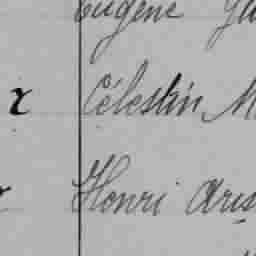 Eugène
r Célestin
Henri Aris